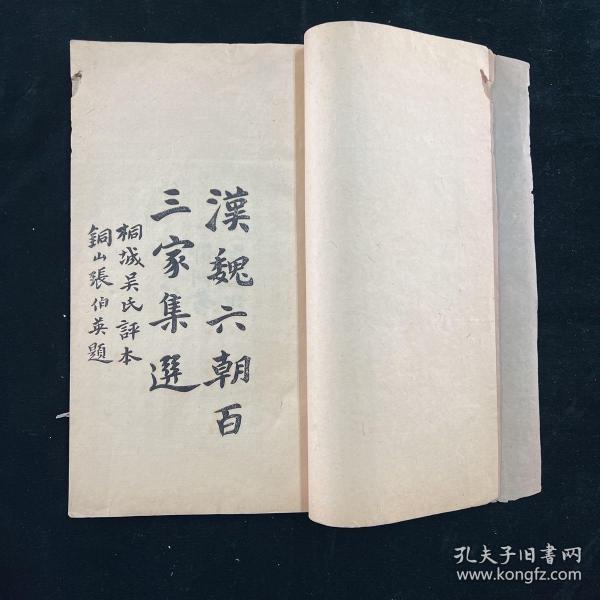 漢魏六朝百
三家集選
桐城吴氏評本
銅山張伯英題
孔夫子旧书网
www.kongfz.com